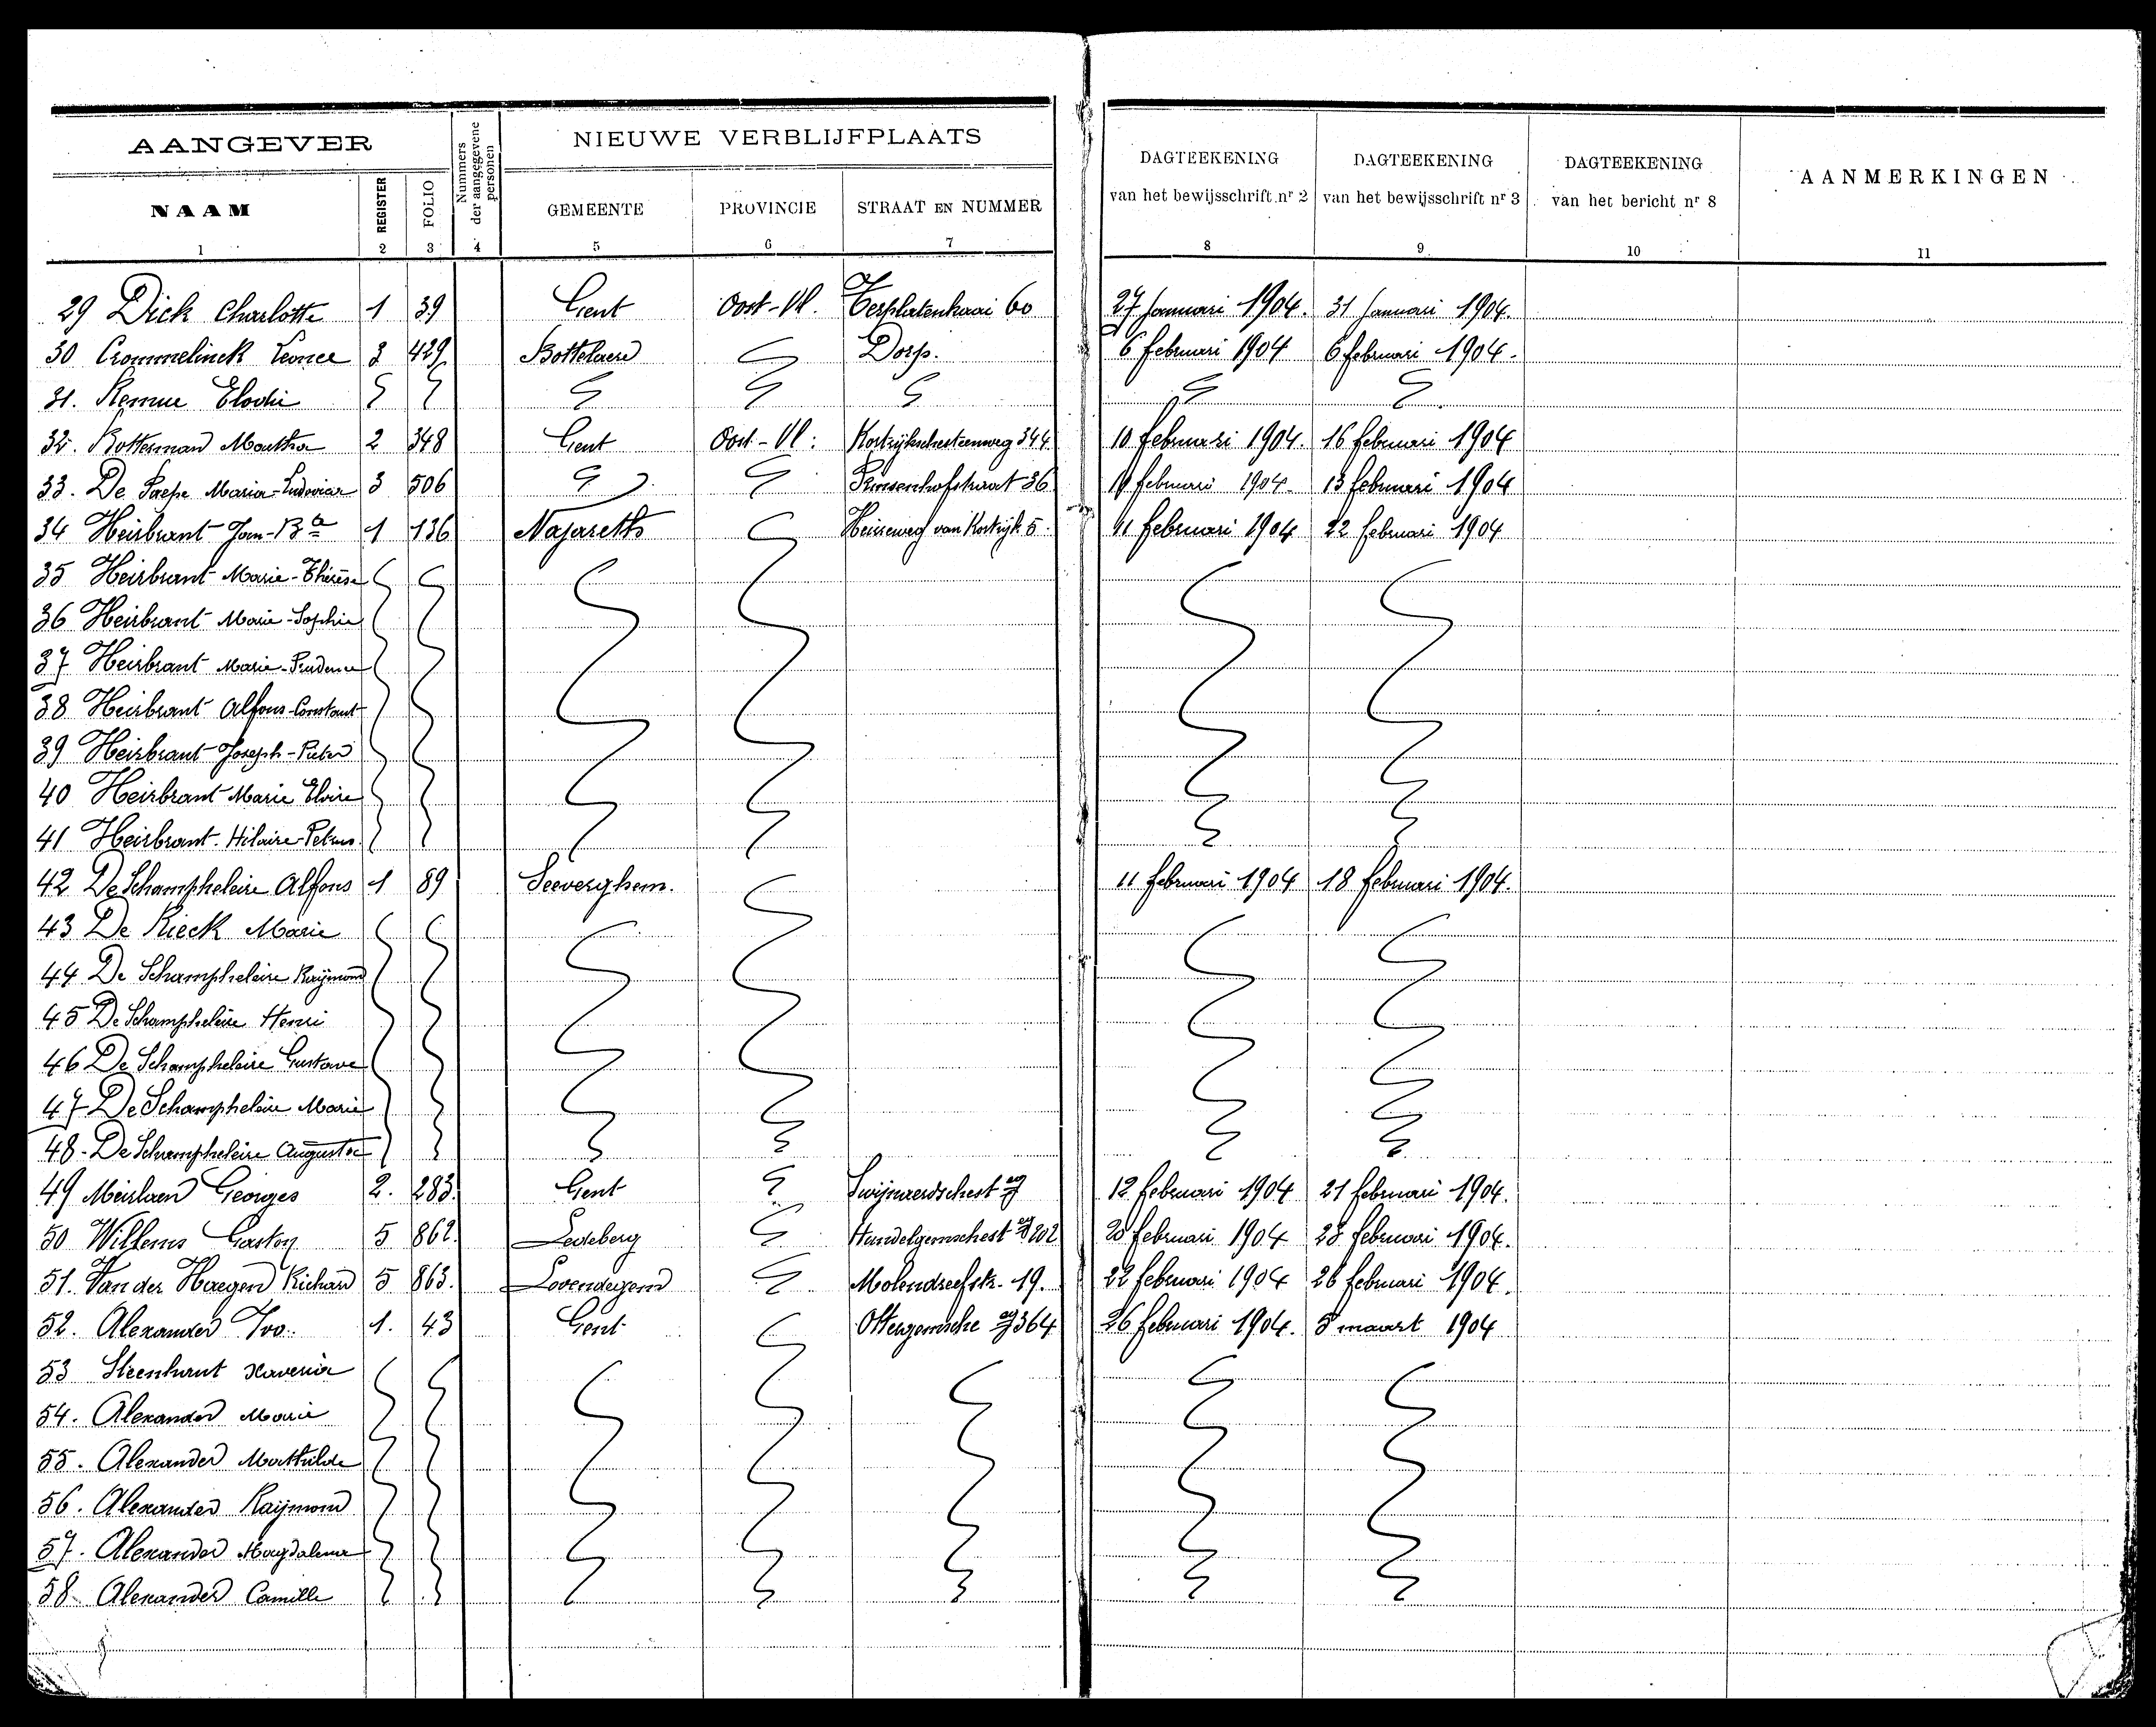 AANGEVER
Nummers der aangegevene personen
NIEUWE VERBLIJFPLAATS
DAGTEEKENING van het bewijsschrift nr 2
DAGTEEKENING van het bewijsschrift nr 3
DAGTEEKENING van het bericht nr 8
AANMERKINGEN
NAAM REGISTER FOLIO GEMEENTE PROVINCIE STRAAT EN NUMMER
1 2 3 4 5 6 7 8 9 10 11
29 Dick Charlotte 1 39 Gent Oost-Vl. Terplatenkaai 60 27 Januari 1904. 31 Januari 1904.
30 Crommelinck Leonce 3 429 Bottelaere Dorp. 6 februari 1904 6 februari 1904.
31. Remue Elodie
32. Botterman Martha 2 348 Gent Oost-Vl: Kortrijkschesteenweg 344 10 februari 1904. 16 februari 1904
33. De Paepe Maria-Ludovica 3 506 Prinsenhofstraat 36 februari 1904. 13 februari 1904
34 Heirbrant Jan-Bta 1 136 Nazareth Heirweg van Kortrijk 5. 11 februari 1904 22 februari 1904
35 Heirbrant Marie-Thérèse
36 Heirbrant Marie-Sophie
37 Heirbrant Marie-Prudence
38 Heirbrant Alfons-Constant
39 Heirbrant Joseph-Pieter
40 Heirbrant Marie Elvire
41 Heirbrant. Hilaire-Petrus.
42 De Schampheleire Alfons 1 89 Seeverghem. 11 februari 1904 18 februari 1904.
43 De Rieck Marie
44 De Schampheleire Raymond
45 De Schampheleire Henri
46 De Schampheleire Gustave
47 De Schampheleire Marie
48- De Schampheleire Augusta
49 Meirlaen Georges 2. 283. Gent Swijnaerdschest wg 12 februari 1904 21 februari 1904.
50 Willems Gaston 5 862. Ledeberg Hundelgemschest wg 202 20 februari 1904 28 februari 1904.
51. Van der Haegen Richard 5 863. Lovendegem Molendreefstr. 19. 22 februari 1904 26 februari 1904.
52. Alexander Ivo. 1. 43 Gent Ottergemsche wg 364 26 februari 1904. 8 maart 1904
53 Steenhaut Xaveria
54. Alexander Marie
55. Alexander Mathilde
56. Alexander Raymond
57. Alexander Magdalena
58. Alexander Camille